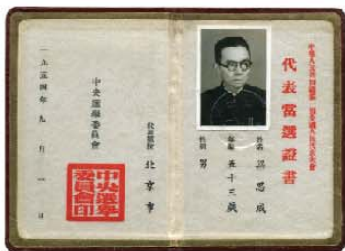 中華人民共和國第一屆全國人民代表大會
代表當選證書
姓名 梁思成
年齡 五十三歲
性別 男
代表單位 北京市
中央選舉委員會
一九五四年九月 日
中央選舉
委員會印